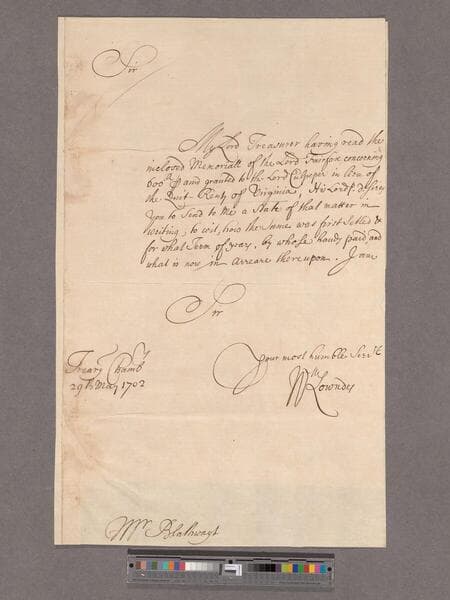 Sir
My Lord Treasurer having read the
inclosed Memoriall of the Lord Fairfax concerning
600 ℔ p and granted to the Lord Culpeper in lieu of
the Quit Rents of Virginia, His Lordp. desires
you to Send to Me a State of that matter in
writing, to wit, how the same was first Setled &
for what Term of years, by whose hands paid, and
what is now in Arreare thereupon. I am
Sir
your most humble Servt.
Wm Lowndes
Treary Chambrs
29th May 1702
Mr Blathwayt